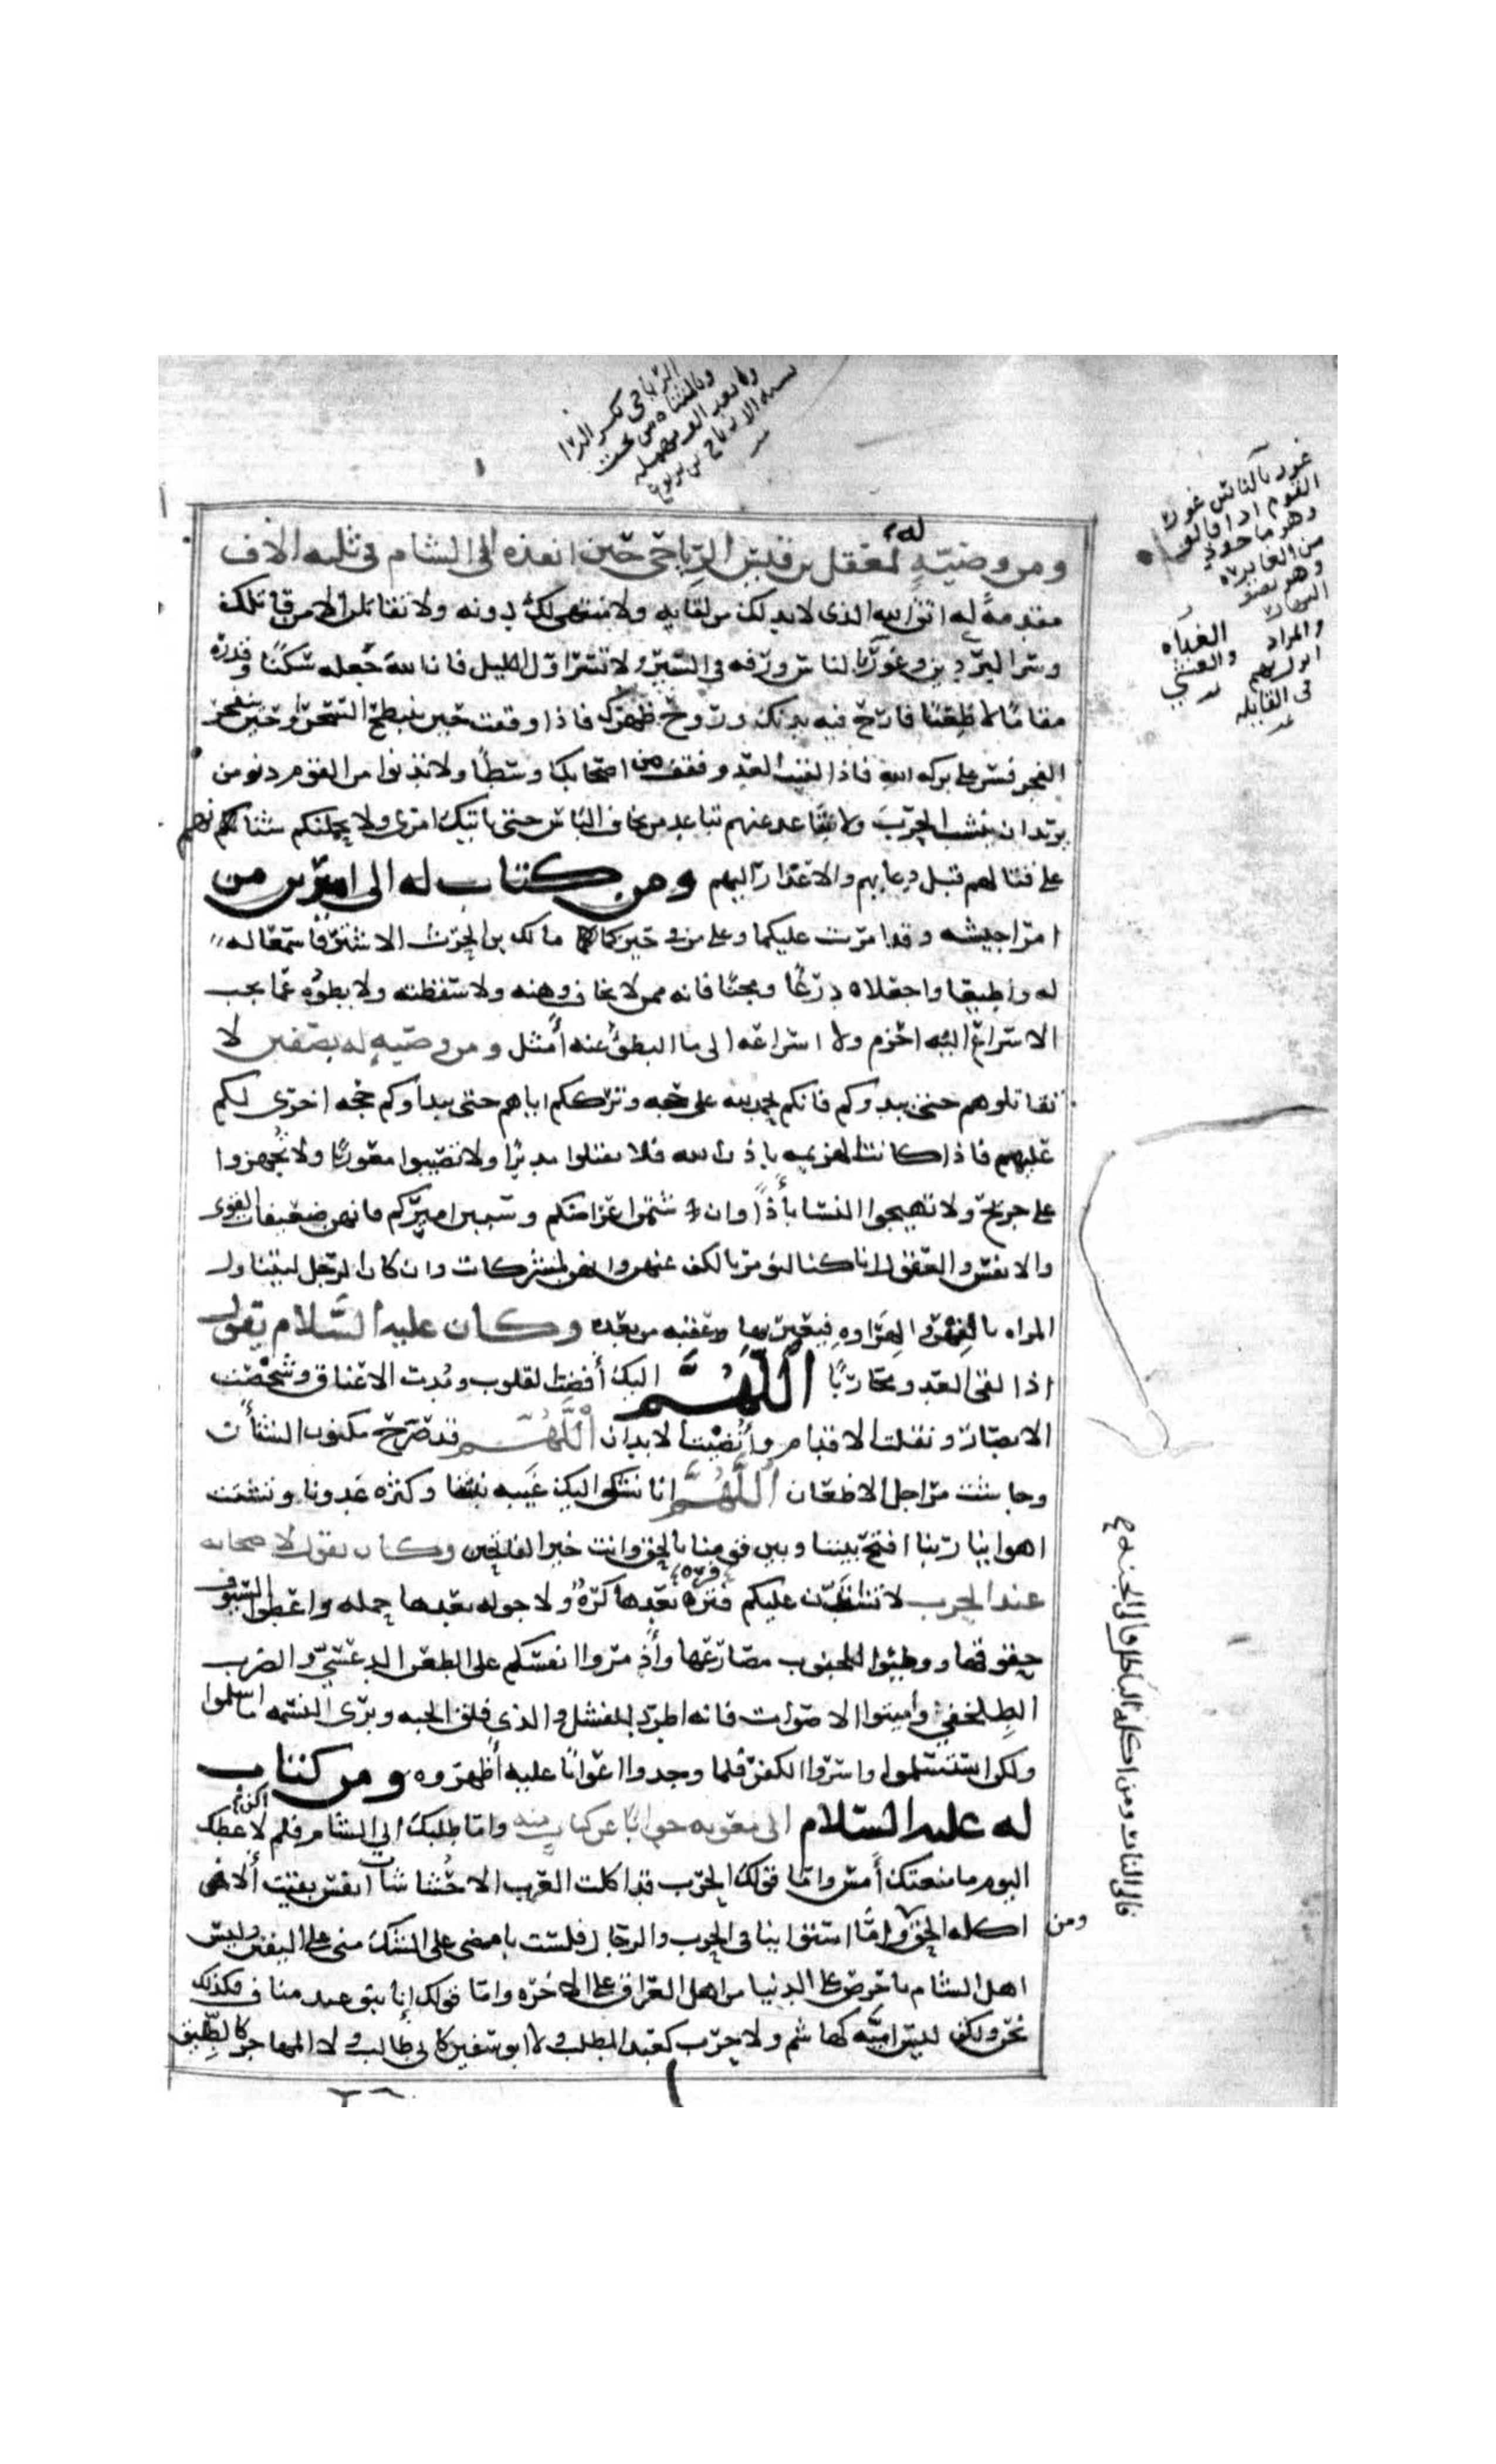 الرياحي بكسر الرا
وبالمثناه من تحت
وبعد الف مهمله
نسبه الى رياح بن يربوع
غور بالناس غور
القوم اذا قالوا
وهو ماخوذ
من الغايره
وهى نصف
النهار
والمراد
انزل بهم
فى القايله
الغداه
والعشي
ومن وصيّةٍ له لمعقل بن قيس الرِّياحي حين انفذه الى الشام في ثلثه الاف
مقدمةً له اتق الله الذى لابد لك من لقايه ولا منتهى لك دونه ولا تقاتلن الا من قاتلك
وسر البردين وغوّر بالناس ورفه في السير ولا تسر اول الليل فان الله جعله سكنًا وقدره
مقامًا لا ظعنًا فارح فيه بدنك وروح ظهرك فاذا وقفت حين ينبطح السحر او حين ينفجر
الفجر فسر على بركه الله فاذا لقيت العدو فقف من اصحابك وسطًا ولا تدنوا من القوم دنو من
يريد ان ينشب الحرب ولا تباعد عنهم تباعد من يخاف الباس حتى ياتيك امرى ولا يحملنكم شنانهم
على قتالهم قبل دعايهم والاعذار اليهم ومن كتاب له الى اميرين من
امرا جيشه وقد امرت عليكما وعلى من في حيزكما مالك بن الحرث الاشتر فاسمعا له
له واطيعا واجعلاه درعًا ومجنًا فانه ممن لا يخاف وهنه ولا سقطته ولا بطوه عما يجب
الاسراع اليه احزم ولا اسراعه الى ما البطؤ عنه أمثل ومن وصيه له بصفين لا
تقاتلوهم حتى يبدوكم فانكم بحمد الله على حجه وترككم اياهم حتى يبداوكم حجه اخرى لكم
عليهم فاذا كانت الهزيمه باذن الله فلا تقتلوا مدبرًا ولا تصيبوا معورًا ولا تُجهزوا
على جريح ولا تهيجوا النسا بأذًا وان شتمن اعراضكم وسببن اميركم فانهن ضعيفات القوى
والانفس والعقول ان كنا لنومر بالكف عنهن وانهن لمشركات وان كان الرجل ليتناول
المراه بالفهر او الهراوه فيعير بها وعقبه من بعده وكان عليه السَّلام يقول
اذا لقى العدو محاربًا اللَّهُمَّ اليك أفضت القلوب ومُدت الاعناق وشخصت
الابصار ونقلت الاقدام وأُنضيت الابدان اللَّهُمَّ قد صَرّح مكنون الشنأن
وجاشت مراجل الاضغان اللَّهُمَّ انا نشكو اليك غَيبه نبينا وكثره عدونا وتشتت
اهواينا ربنا افتح بيننا وبين قومنا بالحق وانت خير الفاتحين وكان يقول لاصحابه
عند الحرب لا تشتدن عليكم فره بعدها كرّة ولا جوله بعدها حمله واعطوا السيوف
حقوقها ووطيوا للجنوب مصارعها وأذمروا انفسكم على الطعن الدعسي والضرب
الطلحفي وأميتوا الاصوات فانه اطرد للفشل والذي فلق الحبه وبرى النسمه ما اسلموا
ولكن استسلموا واسروا الكفر فلما وجدوا اعوانًا عليه أظهروه ومن كتاب
له عليه السّلام الى معويه جوابًا عن كتاب منه واما طلبك الي الشام فلم اكن لاعطيك
اليوم ما منعتك أمس واما قولك ان الحرب قد اكلت العرب الا حُشاشات انفس بقيت ألا ومن
اكله الحق واما استواينا فى الحرب والرجال فلست بامضى على الشك منى على اليقين وليس
اهل الشام باحرص على الدنيا من اهل العراق على الاخره واما قولك إنا بنو عبد مناف فكذلك
نحن ولكن ليس اميّه كهاشم ولا حرب كعبد المطلب ولا ابو سفين كابي طالب ولا المهاجر كالطليق
ومن
فالى النار ومن اكله الباطل فالى الجنه